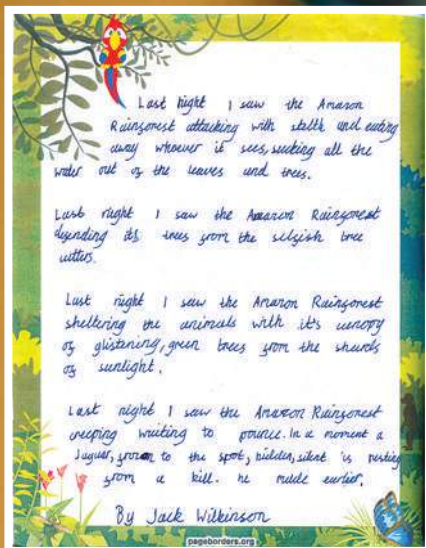 Last night I saw the Amazon
Rainforest attacking with stealth and eating
away whoever it sees, sucking all the
water out of the leaves and trees.
Last night I saw the Amazon Rainforest
defending it's trees from the selfish tree
cutters.
Last night I saw the Amazon Rainforest
sheltering the animals with it's canopy
of glistening, green trees from the shards
of sunlight.
Last night I saw the Amazon Rainforest
creeping waiting to pounce. In a moment a
Jaguar, frozen to the spot, hidden, silent is resting
from a kill. he made earlier.
By Jack Wilkinson
pageborders.org